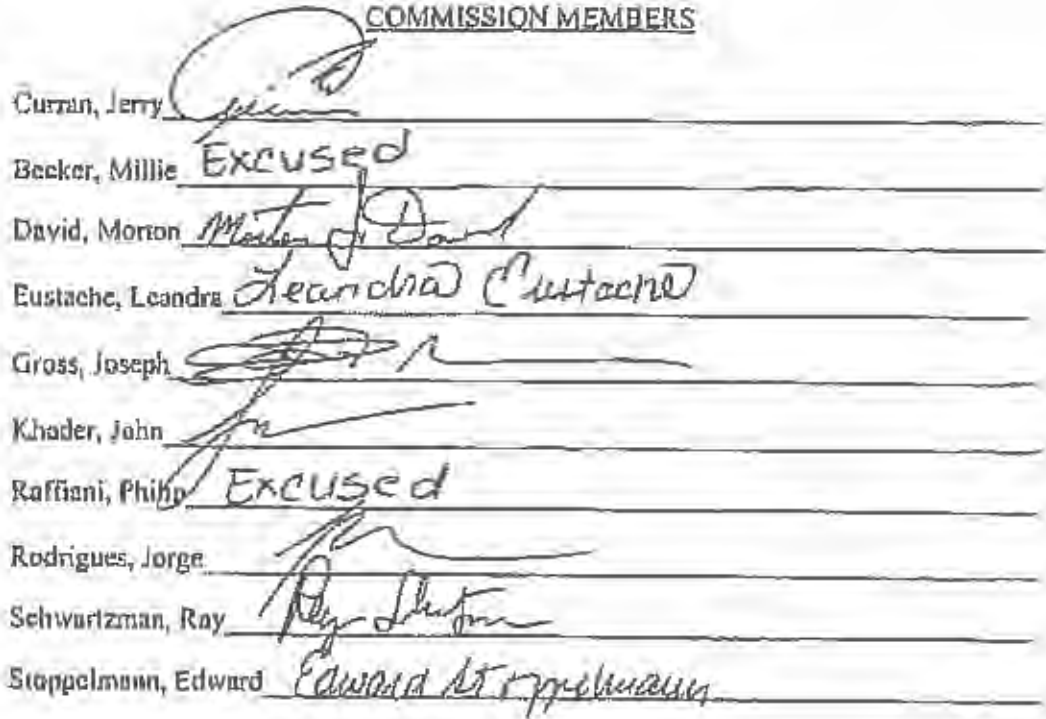 COMMISSION MEMBERS
Curran, Jerry
Becker, Millie Excused
David, Morton Morton J David
Eustache, Leandra Leandra Eustache
Gross, Joseph
Khader, John
Raffiani, Philip Excused
Rodrigues, Jorge
Schwartzman, Ray Ray
Stoppelmann, Edward Edward Stoppelmann